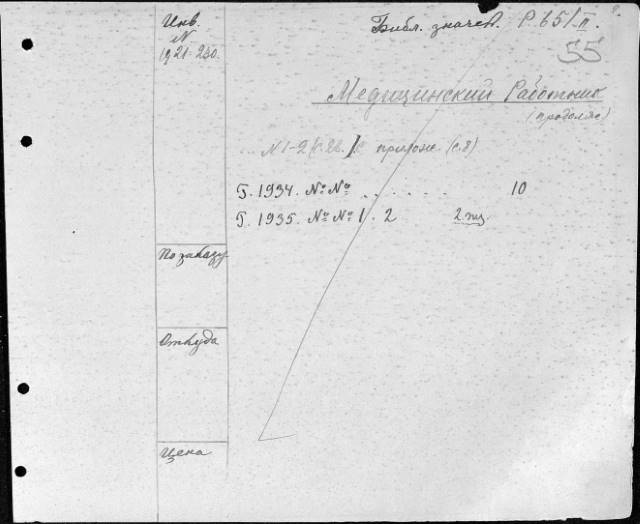 Инв.
N
1921-230.
Библ. значен. Р 651 п.
55
Медицинский Работник
(продолж)
N1-2 прилож. (с.8)
Г. 1934. №№ . . . . . . 10
Г. 1935. №№ 1. 2 2 экз.
По заказу
Откуда
Цена